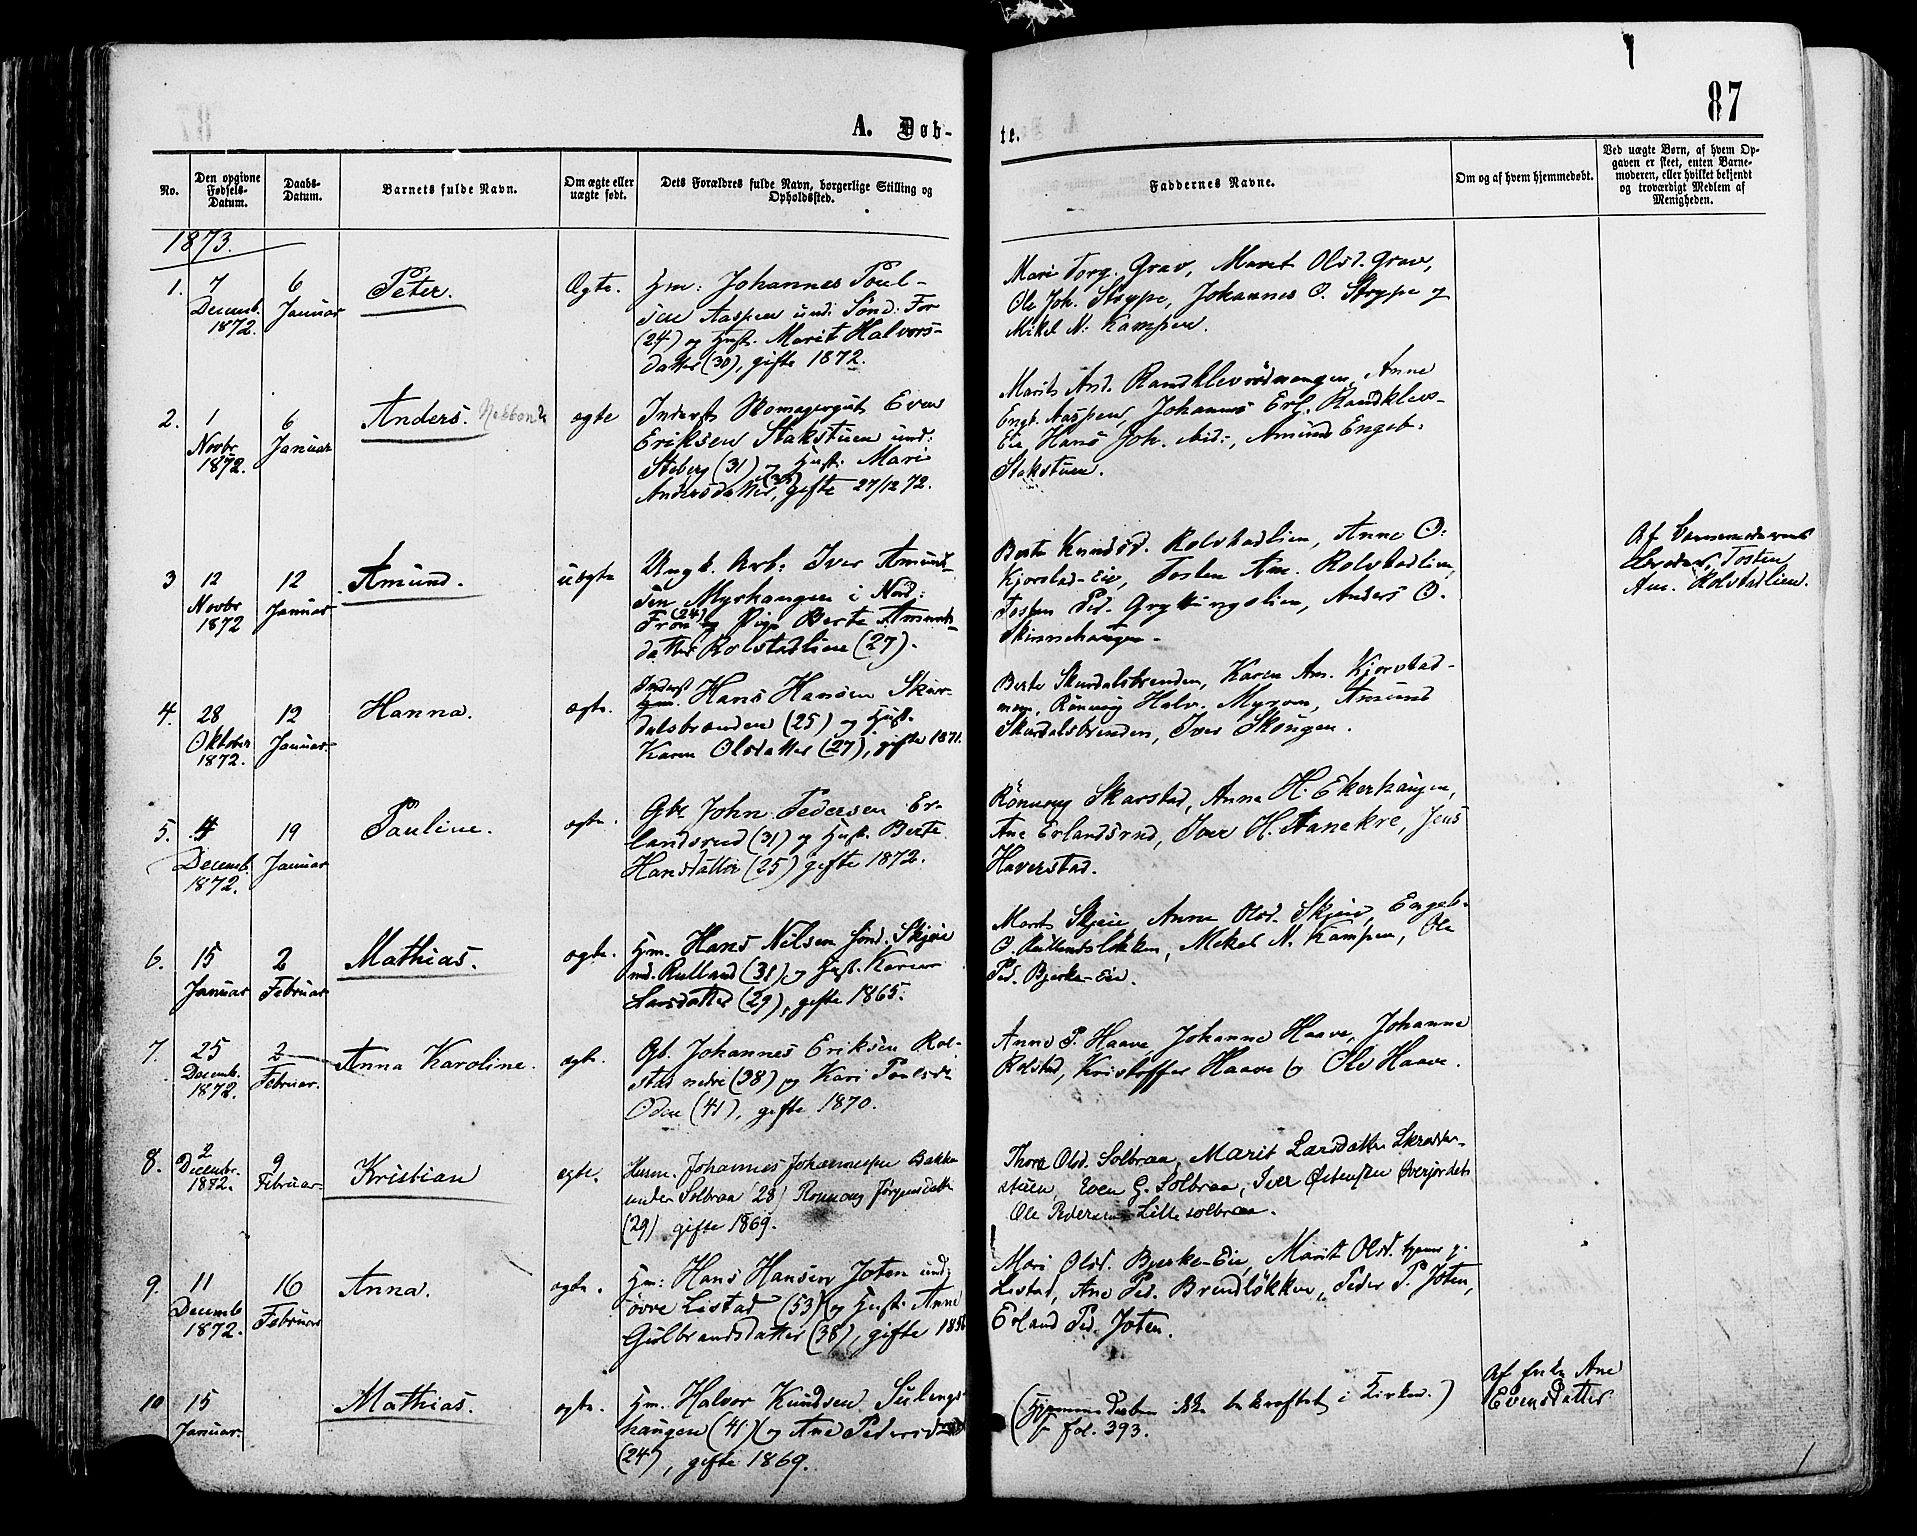 87
A. Døb-
te.
No.
Den opgivne Fødsels-Datum.
Daabs-Datum.
Barnets fulde Navn.
Om ægte eller uægte født.
Dets Forældres fulde Navn, borgerlige Stilling og Opholdssted.
Faddernes Navne.
Om og af hvem hjemmedøbt.
Ved uægte Børn, af hvem Opgaven er skeet, enten Barnemoderen, eller hvilket bekjendt og troværdigt Medlem af Menigheden.
1873.
1.
7 Decemb. 1872.
6 Januar
Peter.
Ægte.
Hm: Johannes Poul-
sen Aaspen und: Sönd: For
(24) og Hust. Marit Halvors-
datter (30), gifte 1872.
Mari Torg. Grav, Maret Olsd. Grav,
Ole Joh. Stoype, Johannes O. Stoype og
Mikel N. Kampen.
2.
1 Novbr 1872.
6 Januar
Anders.
ægte
Inderst Even
Eriksen Stakstuen und:
Steberg (31) og Hust: Mari
Andersdatter, gifte 27/12 72.
Marit And. Randklevrödmengen, Anne
Engb. Aaspen, Johannes Erl. Randklev-
Eie, Hans Joh. ibid:, Amund Engeb.
Stakstuen.
3
12 Novbr 1872
12 Januar
Amund.
uægte
Ungk. Arb: Iver Amund-
sen Myrhaugen i Nord:
Fron (24) og Pige Berte Amunds-
datter Rolstadlien (27).
Berte Knudsd. Rolstadlien, Anne O.
Kjorstad-Eie, Tosten Am. Rolstadlien,
Tosten Ped. Gryttingslien, Anders O.
Skinnehaugen.
Af Barnemoderens
Broder, Tosten
Am. Rolstadlien.
4.
28 Oktober 1872.
12 Januar
Hanna.
ægte.
Inderst Hans Hansen Skur-
dalsbrenden (25) og Hust.
Karen Olsdatter (27), gifte 1871.
Berte Skurdalsbrenden, Karen Am. Kjorstad-
moen, Rönnoug Halv. Myrom, Amund
Skurdalsbrenden, Iver Skougen.
5.
4 Decemb. 1872.
19 Januar
Pauline.
ægte.
Gbr John Pedersen Er-
landsrud (31) og Hust. Berte
Hansdatter (25) gifte 1872.
Rönnoug Skarstad, Anne H. Ekerhaugen,
Ane Erlandsrud, Iver H. Aanekre, Jens
Haverstad.
6.
15 Januar
2 Februar
Mathias.
ægte.
Hm. Hans Nilsen Sönd. Skjeie
nd. Rulland (31) og Hust. Karen
Larsdatter (29), gifte 1865.
Marit Skjeie, Anne Olsd. Skjeie, Engeb.
O. Rullandslökken, Mikel N. Kampen, Ole
Ped. Bjerke-Eie.
7.
25 Decemb. 1872.
2 Februar.
Anna Karoline.
ægte.
Gb. Johannes Eriksen Rol-
stad nedre (38) og Kari Poulsd.
Oden (41), gifte 1870.
Anne P. Haave, Johanne Haave, Johanne
Rolstad, Kristoffer Haave og Ole Haave.
8.
2 Decembr. 1872.
9 Februar
Kristian
ægte.
Husm. Johannes Johannesen Bakke
under Solbraa (28) Rønnoug Jörgensdatter
(29) gifte 1869.
Thore Olsd. Solbraa, Marit Larsdatter Skredder-
stuen, Even G. Solbraa, Iver Østensen Øverjordet
Ole Pedersen Lillesolbraa.
9.
11 Decemb 1872.
16 Februar
Anna.
ægte.
Hm: Hans Hansen Joten und:
övre Listad (53) og Hust: Anne
Gulbrandsdatter (38), gifte 185
Mari Olsd. Bjerke-Eie, Marit Olsd.
Listad, Ane Ped. Brendlökken, Peder P. Joten,
Erland Ped. Joten.
10
15 Januar.
Mathias.
ægte.
Hm. Halvor Knudsen Sulengs-
haugen (41) og Ane Pedersd
(24), gifte 1869.
(Hjemmedaaben ikke bekræftet i Kirken.)
fol. 393.
Af Enke Ane
Evensdatter